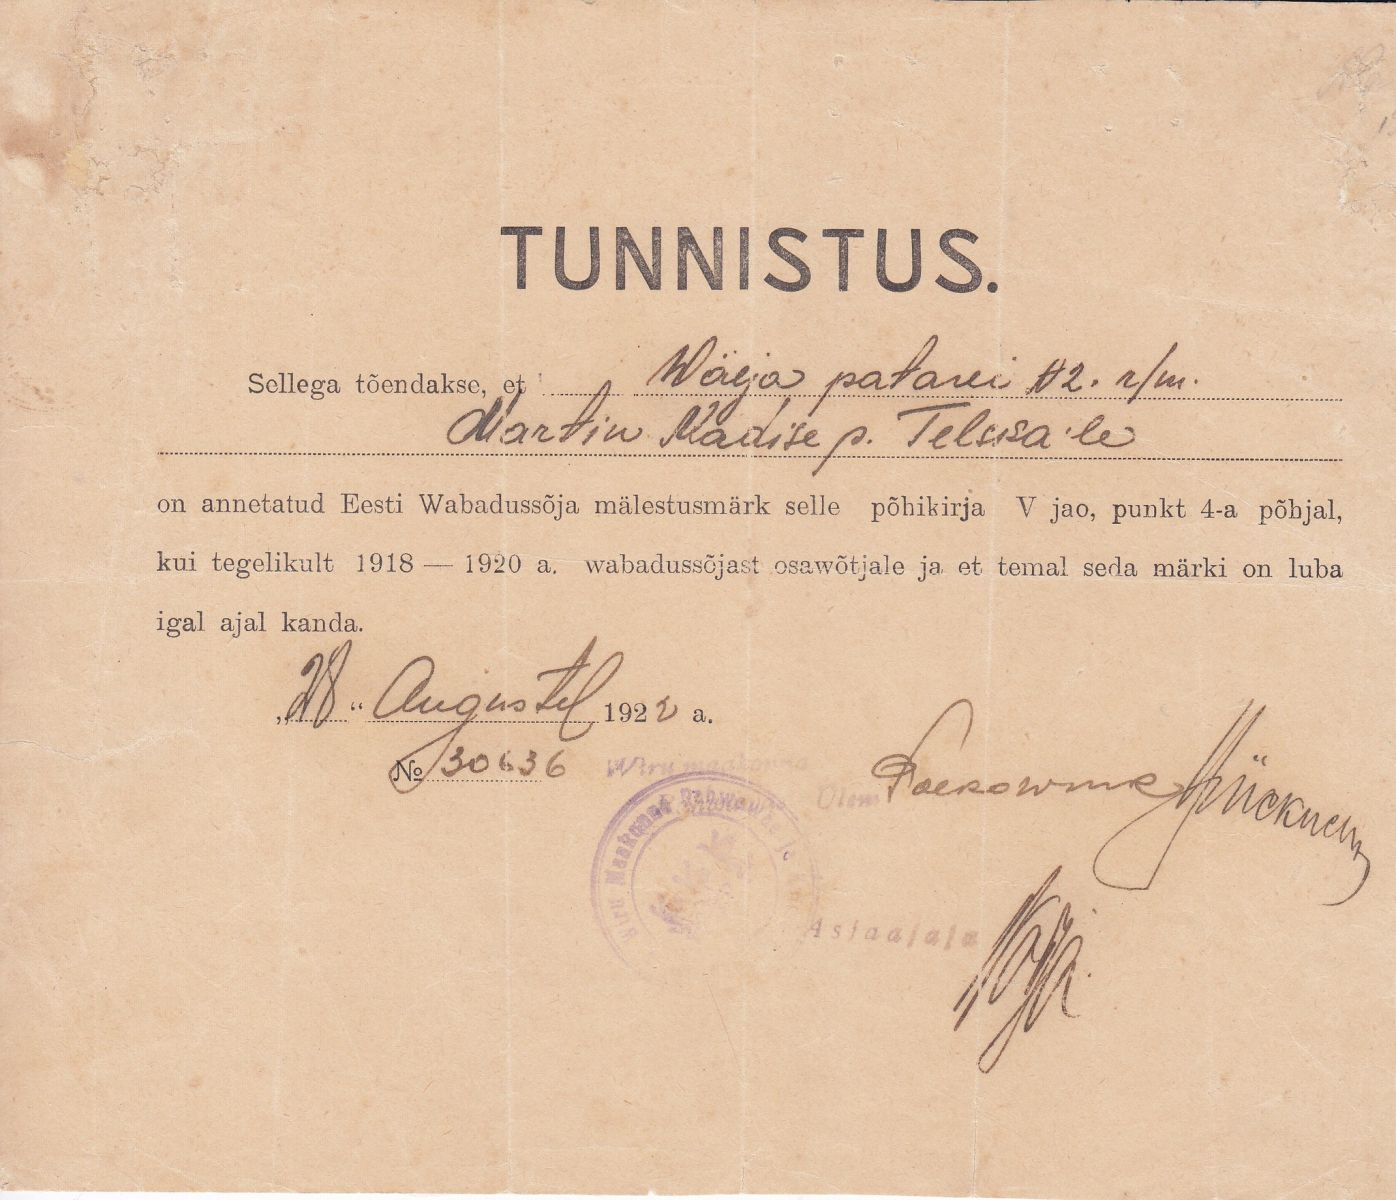 TUNNISTUS.
Sellega tõendakse, et Wäeja patarei №2. r/m.
Martin Madise p. Telissa'le
on annetatud Eesti Wabadussõja mälestusmärk selle põhikirja V jao, punkt 4-a põhjal,
kui tegelikult 1918 — 1920 a. wabadussõjast osawõtjale ja et temal seda märki on luba
igal ajal kanda.
„28“ Augustil 1922 a.
№ 30636
Wiru maakonna
Ülem Polkownik
Wiru Maakonna Rahwawäe
Asjaajaja